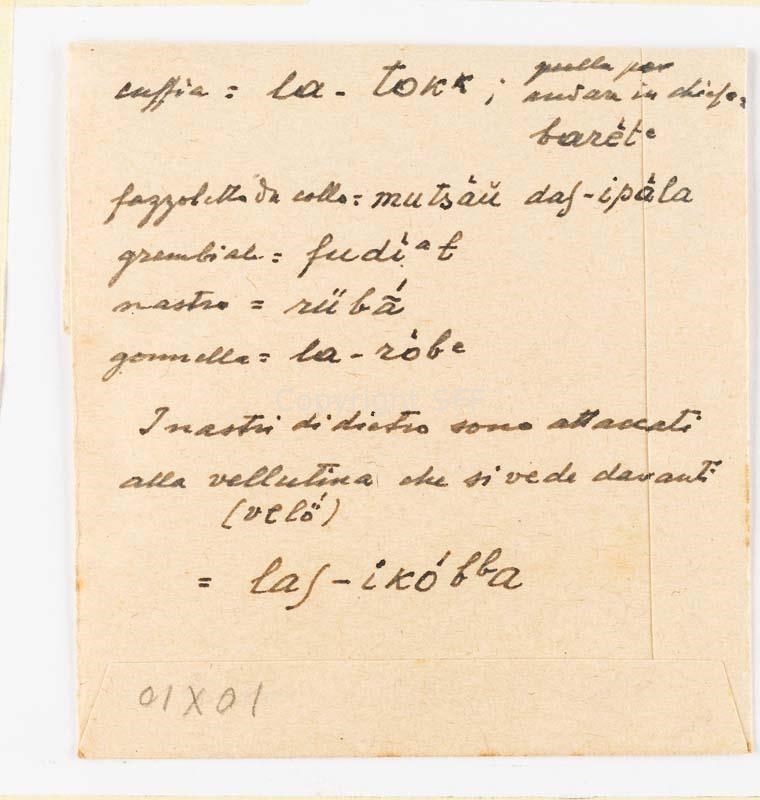 cuffia = la-tokk ; quella per
andare in chiesa,
barète
fazzoletto da collo = mutsàŭ daʃ-ipàla
grembiale = fudiat
nastro = rübã́
gonnella = la-ròbe
I nastri di dietro sono attaccati
alla vellutina che si vede davanti
(velö́)
= laʃ-ikóbba
01X01